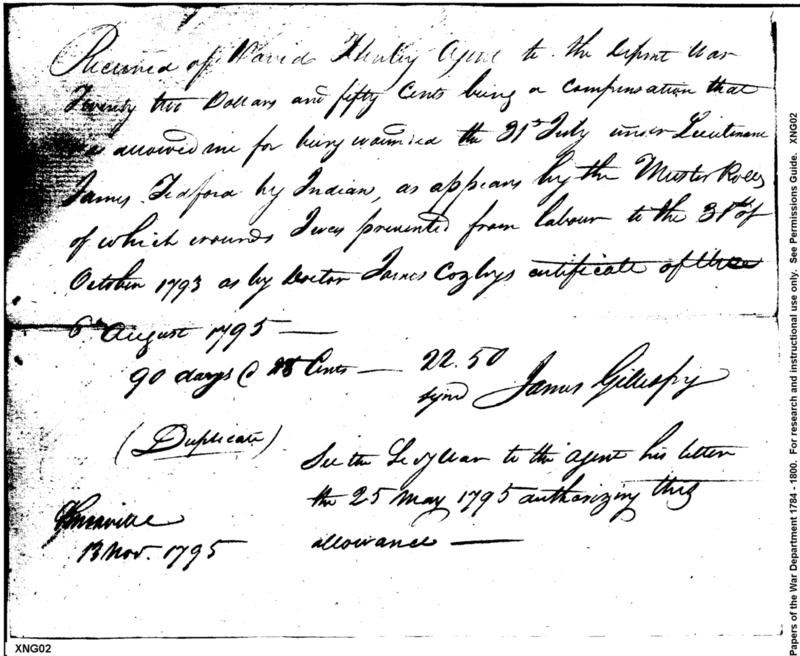 Received of David Henley Agent to the Deptmt War
Twenty two Dollars and fifty Cents being a compensation that
is allowed me for being wounded the 31st July under Lieutenant
James Tedford by Indian, as appears by the Muster Rolls
of which wounds I was prevented from labour to the 31st of
October 1793 as by Doctor James Cozbys certificate of the
6th August 1795 —
90 days @ 25 Cents — 22.50
signd James Gillespy
(Duplicate)
See the Secy War to the agent his letter
the 25 May 1795 authorizing this
allowance —
Knoxville
13 Nov. 1795
XNG02
Papers of the War Department 1784 - 1800. For research and instructional use only. See Permissions Guide. XNG02